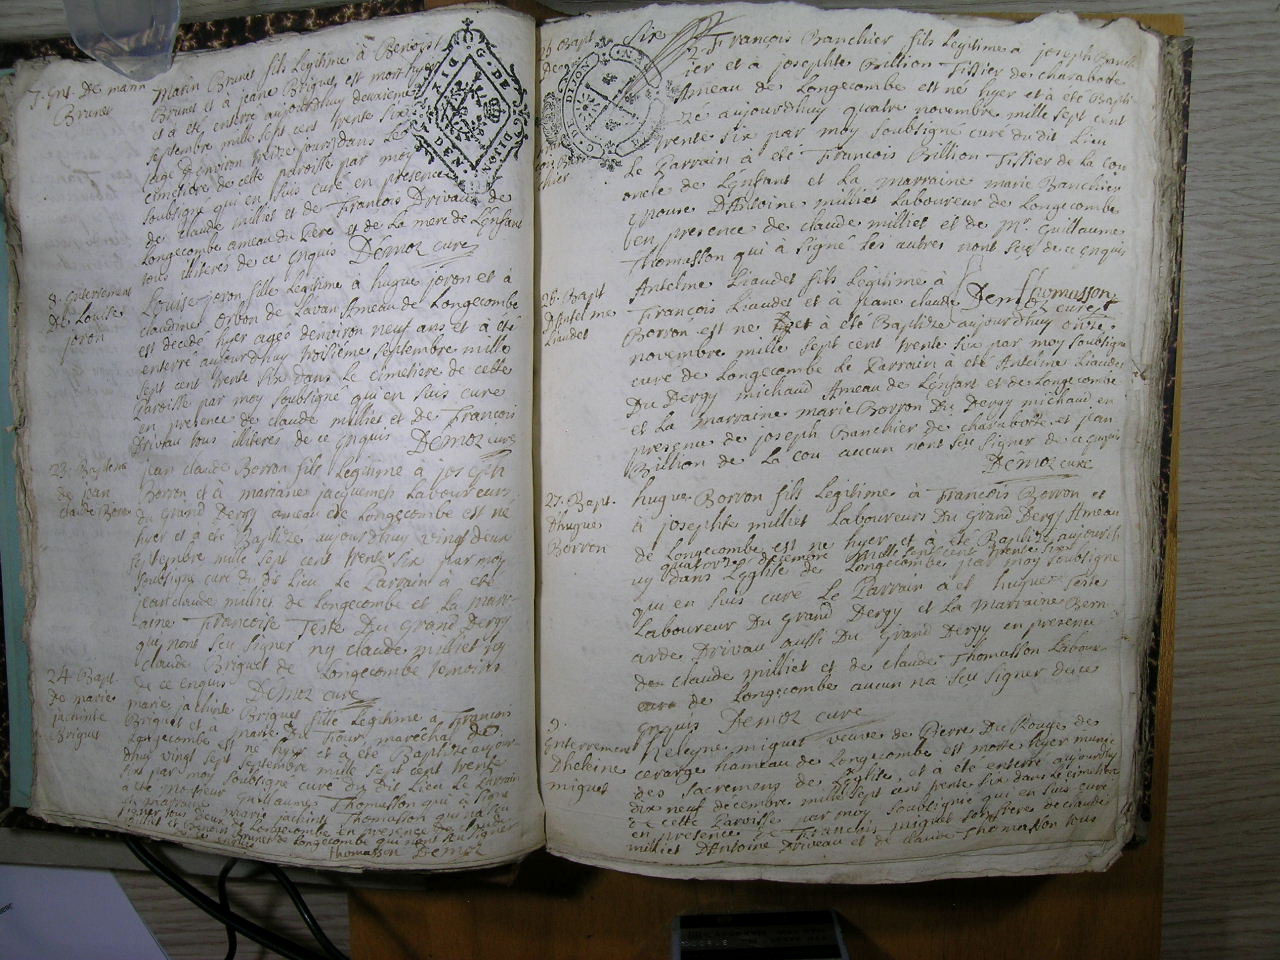 7. Ent. De marin
Brunet
Marin Brunet fils Legitime à Benoist
Brunet et à jeane Briguet est mort hyer
et à été enterré aujourdhuy deuxieme
septembre mille sept cent trente six
agé Denviron trente jours dans Le
cimetiere de cette paroisse par moy
soubsigné qui en suis curé en presence
de claude milliet et de François Drivau de
Longecombe ameau du Pere et de La mere de Lenfant
tous illiteres de ce enquis Demoz curé
8. Enterrement
De Louise
joron
Louise joron fille Legitime à hugue joron et à
claudine orvon de Lavan Ameau de Longecombe
est decedé hyer agée denviron neuf ans et à été
enterré aujourdhuy troisième septembre mille
sept cent trente six dans Le cimetiere de cette
Paroisse par moy soubsigné qui en suis curé
en presence de claude milliet et de François
Drivau tous illiteres de ce enquis Demoz curé
23. Baptême
de jean
claude Borron
jean claude Borron fils Legitime à joseph
Borron et à mariane jacquemet Laboureurs
du grand Dergy ameau de Longecombe est né
hyer et à été Baptizé aujourdhuy vingt deux
septembre mille sept cent trente six par moy
soubsigné curé du dit Lieu Le Parrain à été
jean claude milliet de Longecombe et La marr
aine Françoise Teste Du grand Dergy
qui nont seu signer ny claude milliet ny
claude Briguet de Longecombe temoins
de ce enquis Demoz curé
24. Bapt.
De marie
jacinte
Briguet
marie jacinte Briguet fille Legitime à François
Briguet et à marie Du Four marechal de
Longecombe est né hyer et à été Baptizé aujour
dhuy vingt sept septembre mille sept cent trente
six par moy soubsigné curé du dit Lieu Le Parrain
à été monsieur Guillaume Thomasson qui à signé
et La marraine marie jacinte Thomasson qui na seu
signer
en presence de claude
milliet et Benoist Brunet de Longecombe qui nont seu signer
enquis
Thomasson Demoz
Six
25. Bapt
François Banchier fils Legitime à joseph Banch
ier et à josephte Brillion Tissier de charabotte
Ameau de Longecombe est né hyer et à été Bapti
zé aujourdhuy quatre novembre mille sept cent
trente six par moy soubsigné curé du dit Lieu
Le Parrain à été François Brillion Tissier de La cou
oncle de Lenfant et La marraine marie Banchier
epouse D'Antoine milliet Laboureur de Longecombe
en presence de claude milliet et de mr. Guillaume
Thomasson qui à signé Les autres nont seu de ce enquis
Thomasson
Demoz curé
26. Bapt
D'Antelme
Liaudet
Antelme Liaudet fils Legitime à
François Liaudet et à jeane claude
Borron est né hyer et à été Baptizé aujourdhuy onze
novembre mille sept cent trente six par moy soubsigné
curé de Longecombe Le Parrain à été Antelme Liaudet
Du Dergy michaud Ameau de Lenfant et de Longecombe
et La marraine marie Borron Du Dergy michaud en
presence de joseph Banchier de charabotte et jean
Brillion de La cou aucun nont seu signer de ce enquis
Demoz curé
27. Bapt.
D'hugues
Borron
hugue Borron fils Legitime à François Borron et
à josephte milliet Laboureurs Du grand Dergy Ameau
de Longecombe est né hyer et à été Baptizé aujourdh
uy quatorze decembre mille sept cent trente six
dans Leglise de Longecombe par moy soubsigné
qui en suis curé Le Parrain à été hugue Teste
Laboureur Du grand Dergy et La marraine Bern
arde Drivau aussi Du grand Dergy en presence
de claude milliet et de claude Thomasson Labour
eurs de Longecombe aucun na seu signer de ce
enquis Demoz curé
9.
Enterrement
Dheleine
miguet
heleyne miguet veuve de Pierre Du Rouge de
cerarge hameau de Longecombe est morte hyer munie
des sacremens de Leglise et à été enterré aujourdhuy
dix neuf decembre mille sept cent trente six dans le cimetiere
de cette Paroisse par moy soubsigné qui en suis curé
en presence de François miguet son frere de claude
milliet D'Antoine Driveau et de claude Thomasson tous